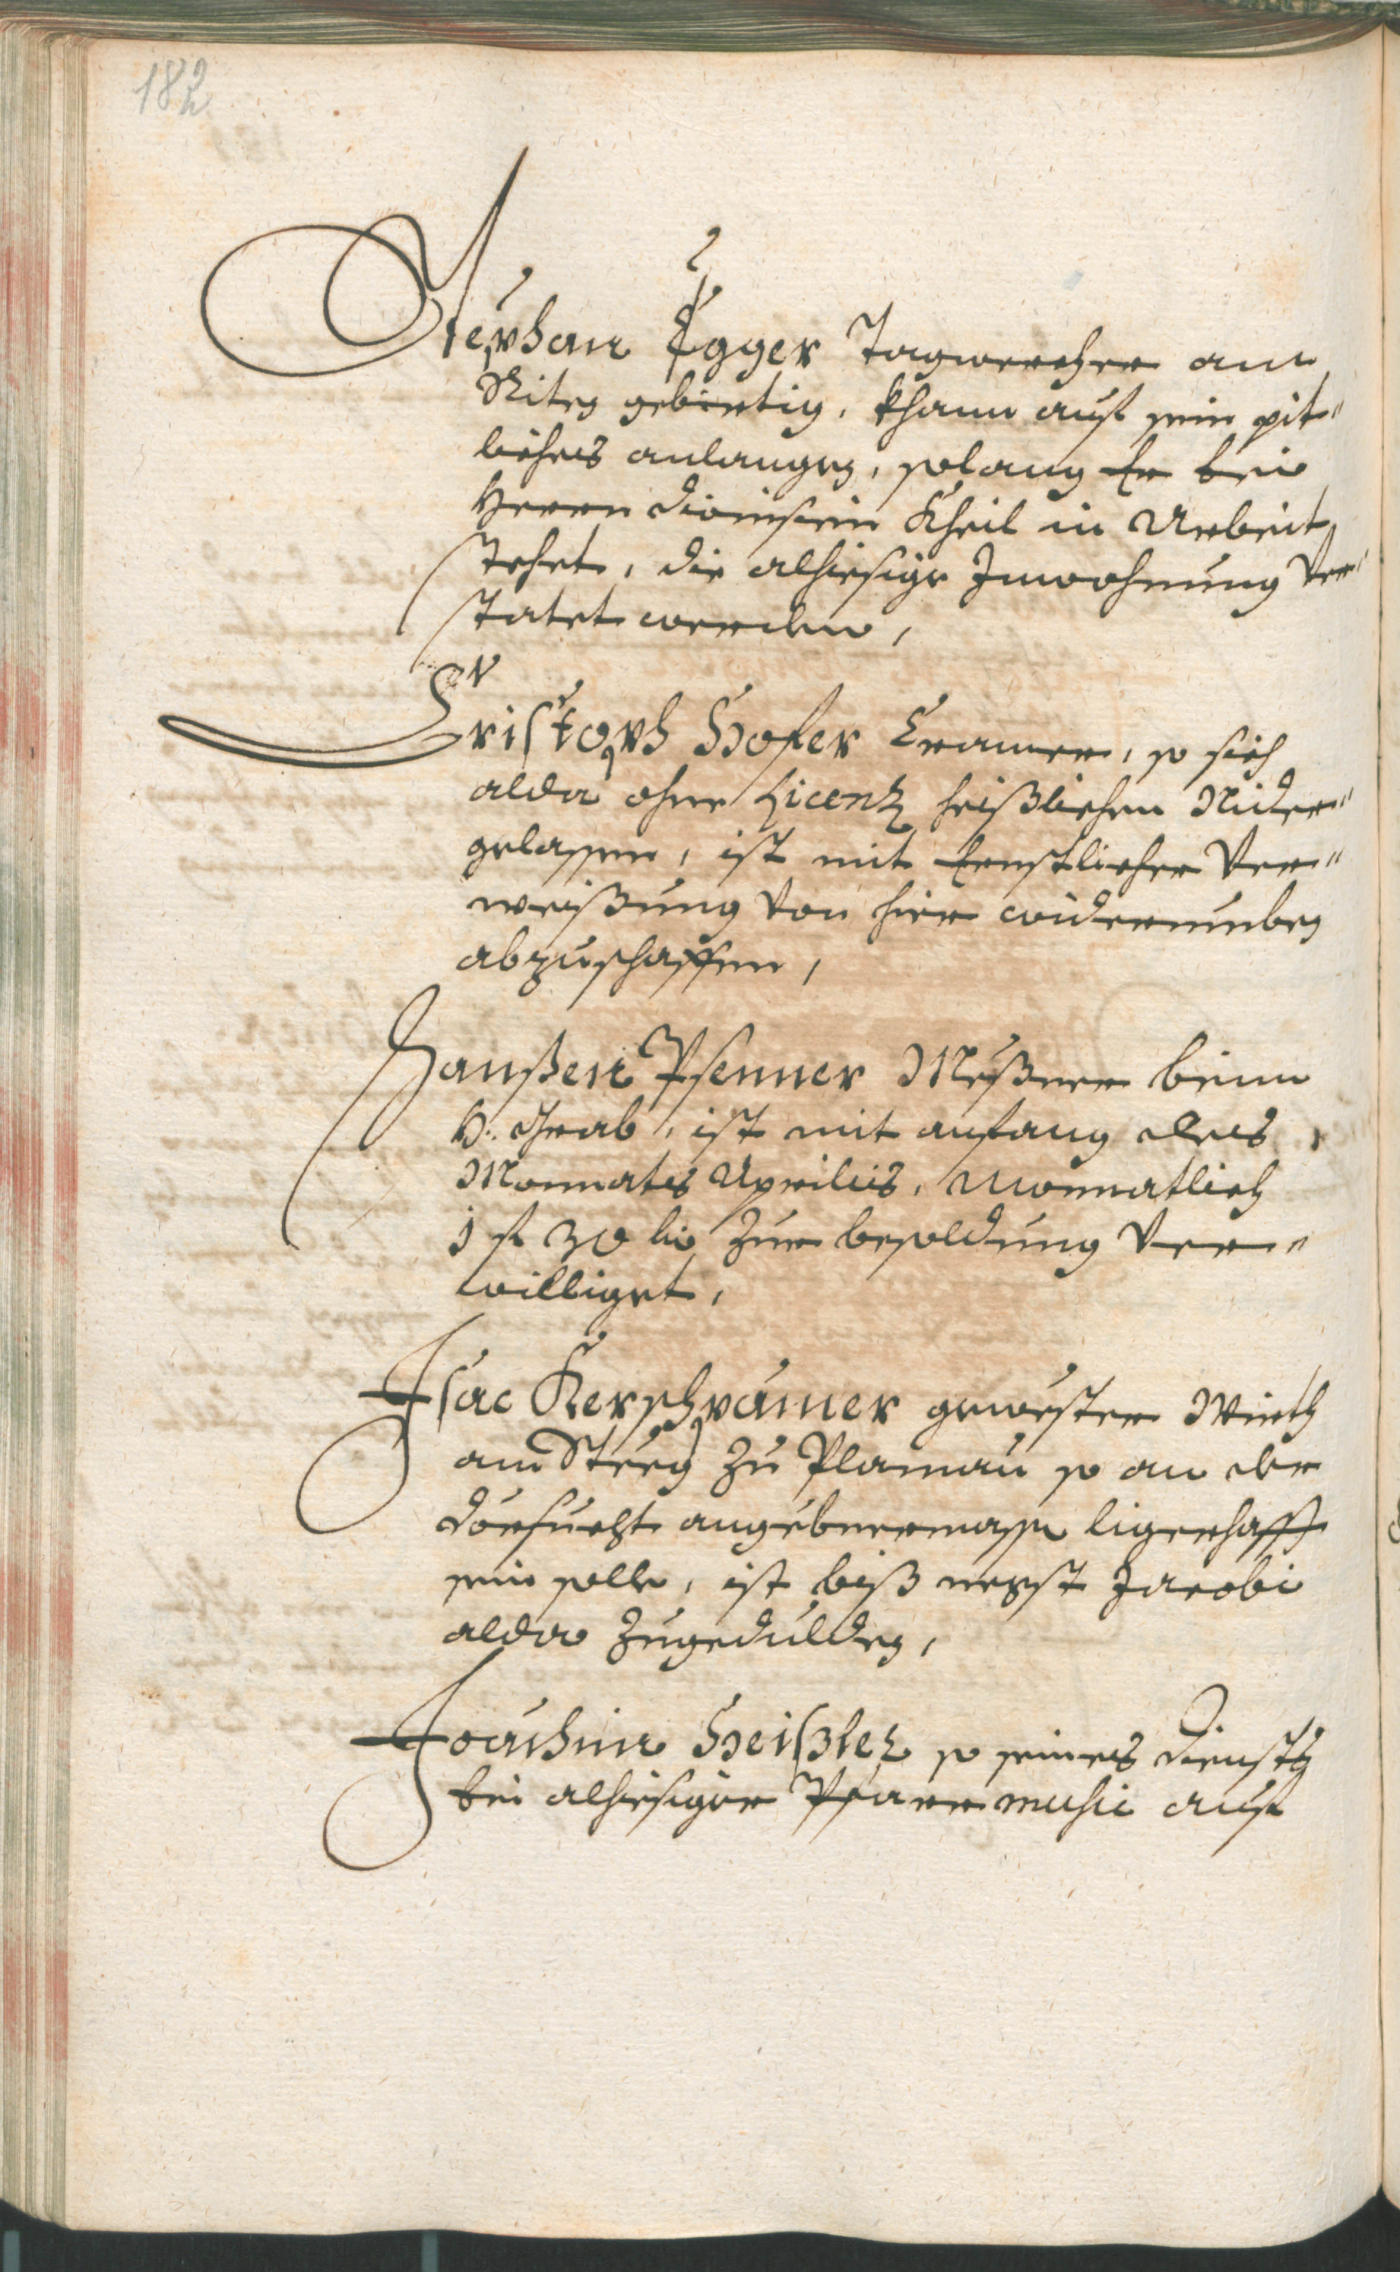 182
Stephan Egger Tagwercher am
Riten gebirtig, khann auf sein pit-"
liches anlangen, solang Er bei
Herrn Dionisien Kheil in Arbeit
stehet, die alhiesige Inwohnung ver-"
statet werden,
Cristoph Hofer Cramer, so sich
alda ohne Licenz heißlichen Nider-"
gelassen, ist mit Ernstlicher Ver-"
weißung von hier widerumben
abzuschaffen,
Hanßen Psenner Meßner beim
H. Grab, ist mit anfang des
Monnats Aprilis, Monnatlich
1 f 30 kr zur besoldung Ver-"
williget,
Isac Kerschpamer gewester Wirth
am Steeg zu Plamau so an der
Dörsucht angebnermassen ligerhafft
sein solle, ist biß negst Jacobi
alda zugedulden,
Joachim Heißler so seines Diensts
bei alhiesiger Pfarr music auß